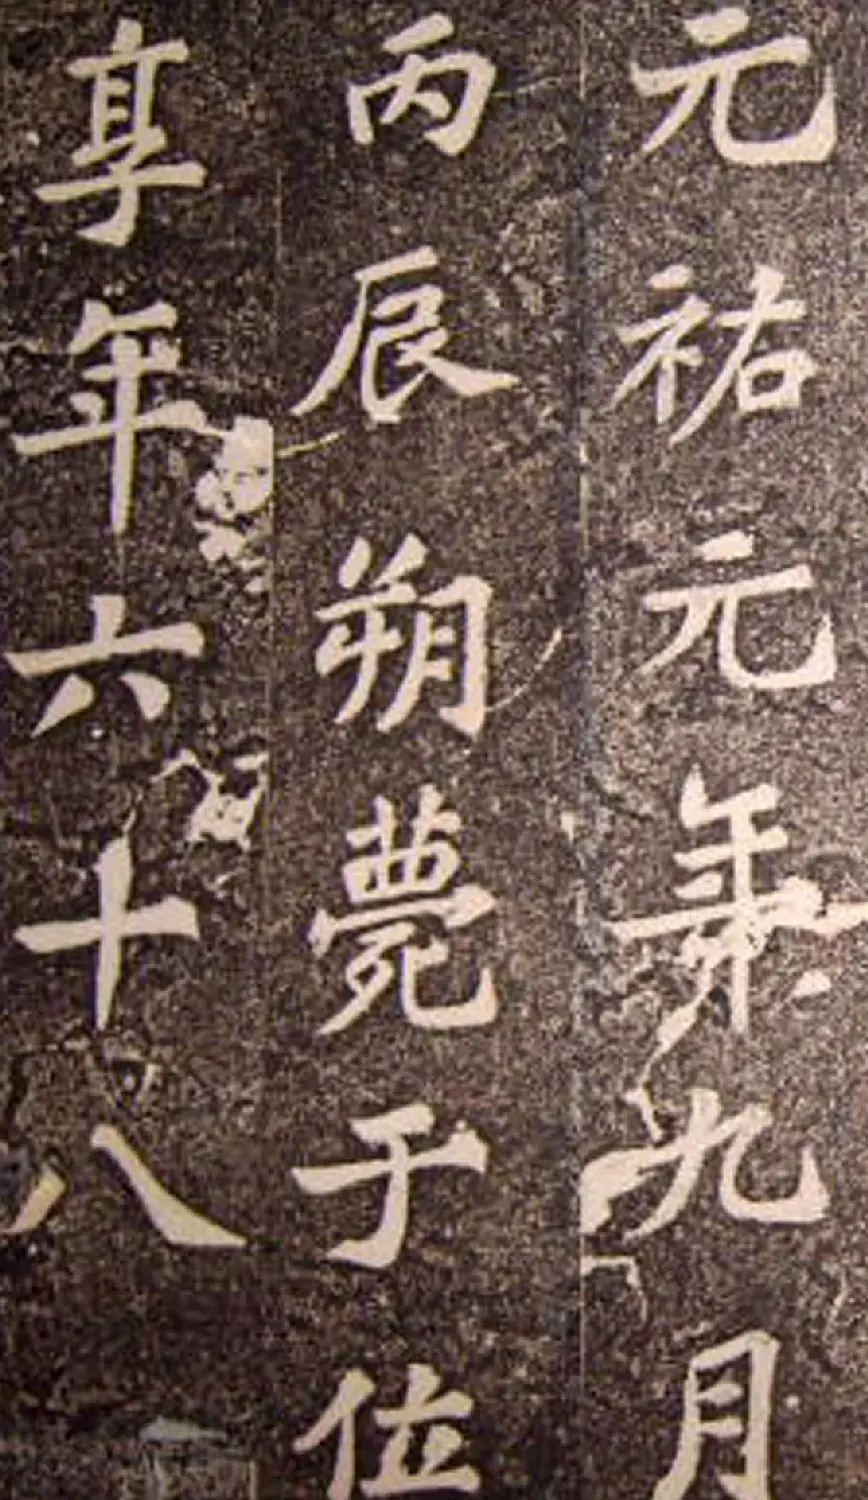 元祐元年九月
丙辰朔薨于位
享年六十八